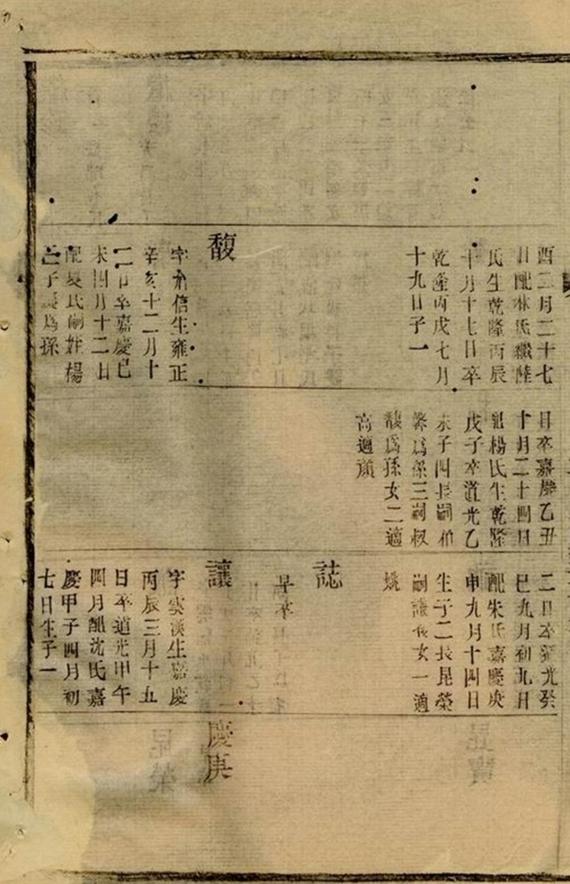 酉二月二十七
日配林氏繼陸
氏生乾隆丙辰
十月十七日卒
乾隆丙戌七月
十九日子一
馥
字 信生雍正
辛亥十二月十
二日卒嘉慶己
未四月十二日
配夏氏嗣姪楊
之子 爲孫
日卒嘉慶乙丑
十月二十四日
配楊氏生乾隆
戊子卒道光乙
未子四長嗣柏
馨爲孫三嗣叔
馥爲孫女二適
高適顏
二日卒道光癸
巳九月初九日
配朱氏嘉慶庚
申九月十四日
生子二長昆榮
嗣讓 女一適
姚
誌
早卒
讓
字雲漢生嘉慶
丙辰三月十五
日卒道光甲午
四月配沈氏嘉
慶甲子四月初
七日生子一
慶庚